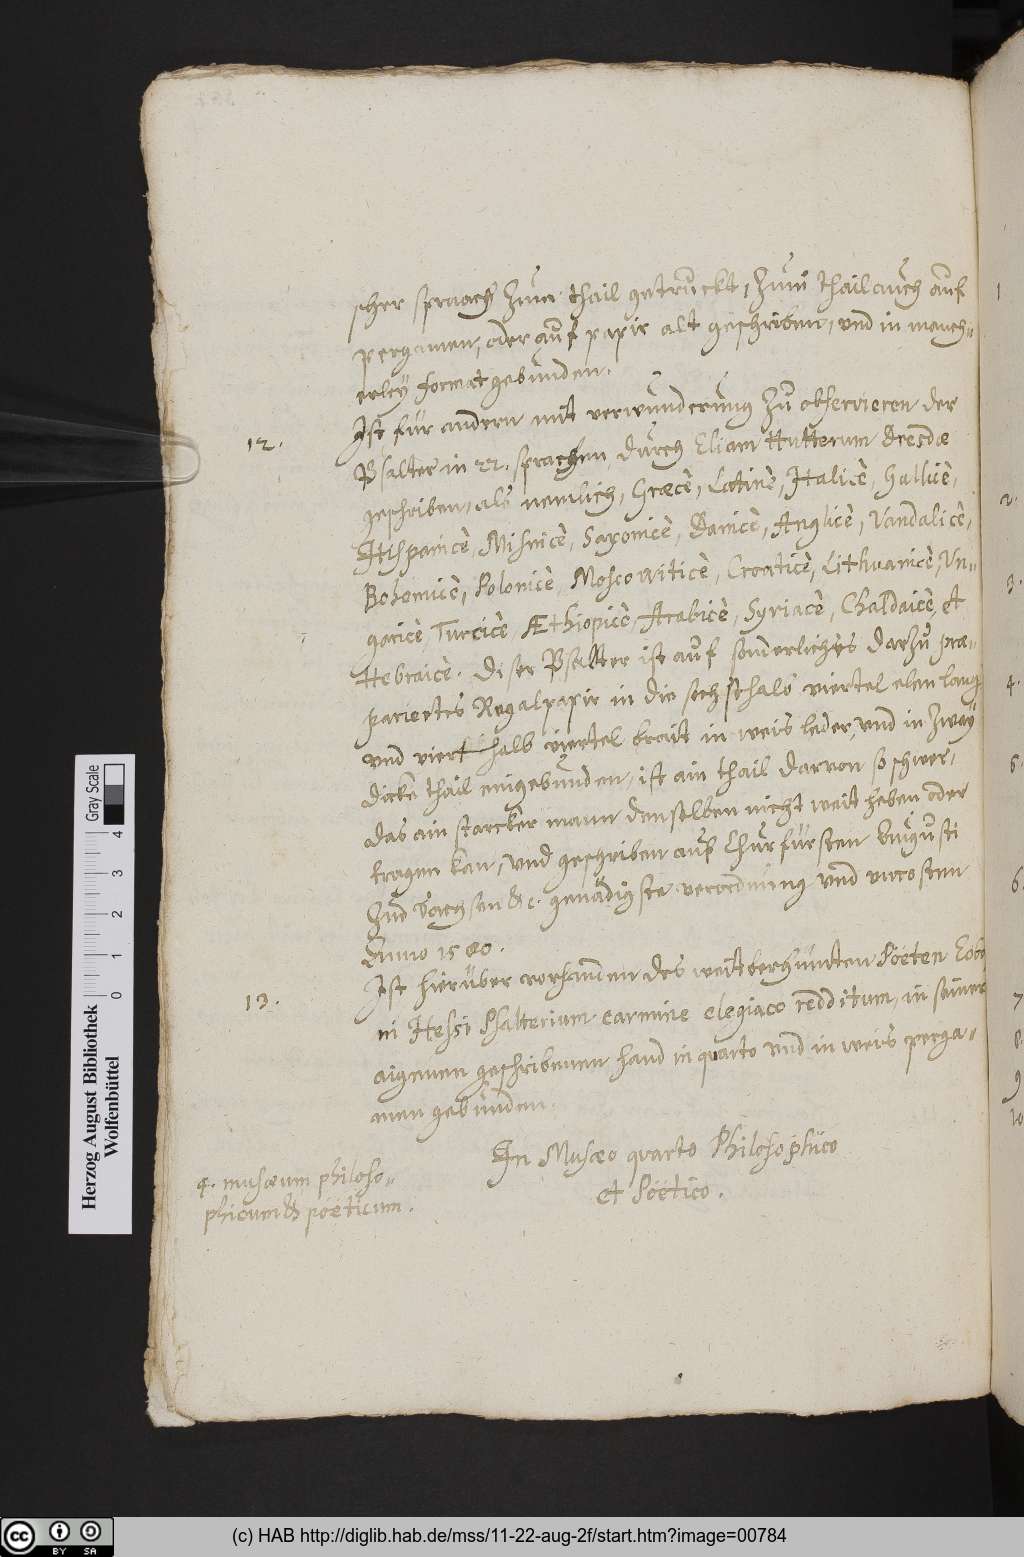 scher spraach zum thail getruckt, zum thail auch auf
pergamen, oder auf papir alt geschriben, und in manch=
erley format gebunden.
12. Ist für andern mit verwunderung zu observieren der
Psalter in 22. sprachen durch Eliam Hutterum Dresdæ
geschriben, als nemlich, Græcè, Latinè, Italicè, Gallicè,
Hispanicè, Misnicè, Saxonicè, Danicè, Anglicè, Vandalicè,
Bohemicè, Polonicè, Moscowiticè, Croaticè, Lithuanicè, Vn=
garicè, Turcicè, Æthiopicè, Arabicè, Syriacè, Chaldaicè, et
Hebraicè. Diser Psalter ist auf sonnerliches darzu præ=
pariertes Regalpapir in die sechsthalb viertel elen lang
und vierthalb viertel brait in weis leder, und in zway
dicke thail eingebunden, ist ain thail darvon so schwer,
das ain starcker mann denselben nicht weit heben oder
tragen kan, und geschriben auß Churfürsten Augusti
zu Sachsen &c. genädigste verordnung und uncosten
Anno 1580.
13. Ist hierüber vorhannden des weitberhümten Pöeten Eoba
ni Hessi Psalterium carmine elegiaco redditum, in seiner
aigenen geschribenen hand in quarto und in weis perga=
men gebunden.
In Musæo quarto Philosophico
et Pöetico.
4. musæum philoso=
phicum & pöeticum.
1
2.
3.
4.
5.
6.
7
8.
9
10
Herzog August Bibliothek
Wolfenbüttel
0 1 2 3 4
Gray Scale
cc BY SA
(c) HAB http://diglib.hab.de/mss/11-22-aug-2f/start.htm?image=00784